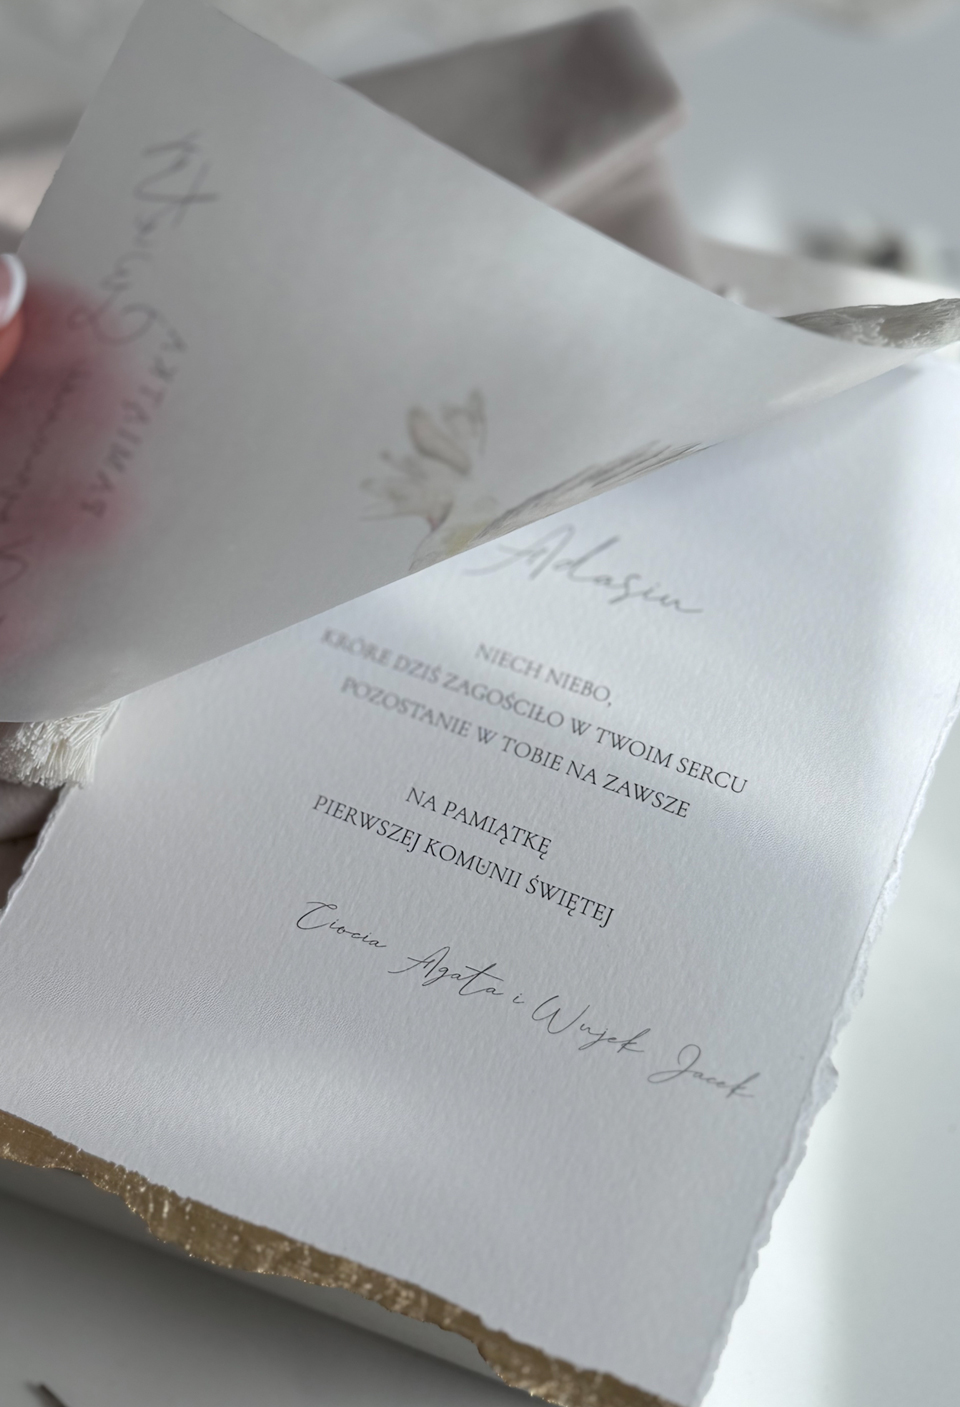 Adasiu
NIECH NIEBO,
KRÓRE DZIŚ ZAGOŚCIŁO W TWOIM SERCU
POZOSTANIE W TOBIE NA ZAWSZE
NA PAMIĄTKĘ
PIERWSZEJ KOMUNII ŚWIĘTEJ
Ciocia Agata i Wujek Jacek